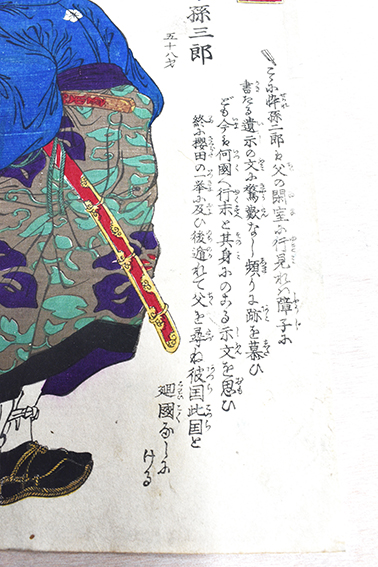 孫三郎
五十八才
こゝに忰孫二郎ハ父の閑室に行見れバ障子に
書たる遺示の文に驚歎なし頻りに跡を慕ひ
ども今ハ何國へ行末と其身にのこる示文を思ひ
終に櫻田の一挙に及ひ後逃れて父を尋ね彼国此国と
廻國なしに
ける